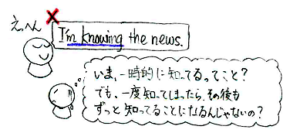 えへん
I'm knowing the news.
いま、一時的に知ってる。ってこと?
でも、一度知ってしまったら、その後も
ずっと知ってることになるんじゃないの?